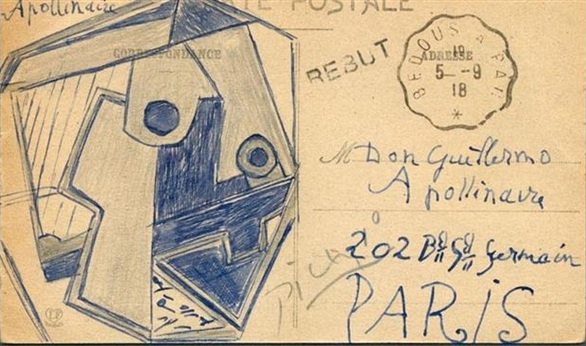 Apollinaire
CARTE POSTALE
CORRESPONDANCE
ADRESSE
REBUT
BEDOUS A PAU
19
5 -9
18
*
M Don Guillermo
Apollinaire
202 Bd St Germain
PARIS
Picasso